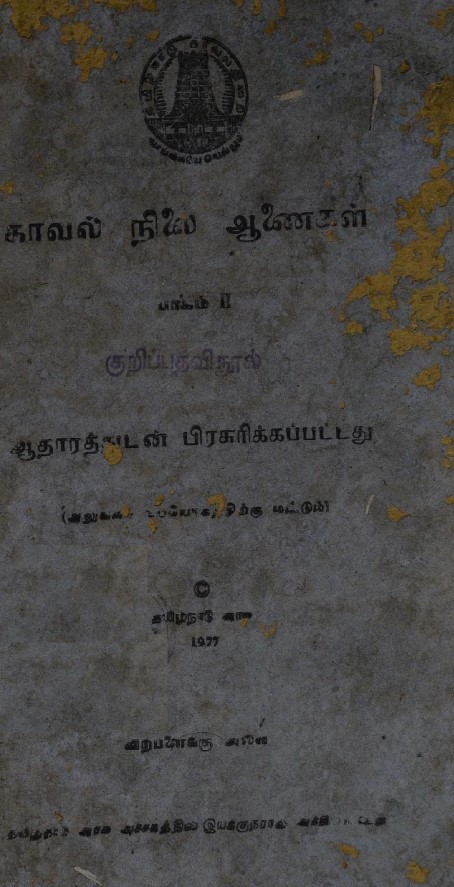 தமிழ்நாடு
வாய்மையே வெல்லும்
காவல் நிலை ஆணைகள்
பாகம் II
குறிப்புதவிநூல்
ஆதாரத்துடன் பிரசுரிக்கப்பட்டது
(அலுவலக உபயோகத்திற்கு மட்டும்)
©
தமிழ்நாடு அரசு
1977
விற்பனைக்கு அல்ல
தமிழ்நாடு அரசு அச்சகத்தில் இயக்குநரால் அச்சிடப்பட்டது